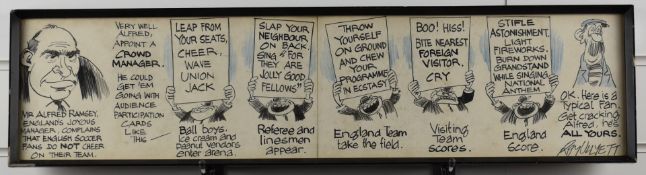 MR. ALFRED RAMSEY,
ENGLAND'S JOYOUS
MANAGER, COMPLAINS
THAT ENGLISH SOCCER
FANS DO NOT CHEER
ON THEIR TEAM.
VERY WELL
ALFRED,
APPOINT A
CROWD
MANAGER.
HE COULD
GET 'EM
GOING WITH
AUDIENCE
PARTICIPATION
CARDS
LIKE
THIS
LEAP FROM
YOUR SEATS,
CHEER,
WAVE
UNION
JACK
Ball boys,
ice cream and
peanut vendors
enter arena.
SLAP YOUR
NEIGHBOUR
ON BACK.
SING "FOR
THEY ARE
JOLLY GOOD
FELLOWS"
Referee and
linesmen
appear.
THROW
YOURSELF
ON GROUND
AND CHEW
YOUR
PROGRAMME
IN ECSTASY
England Team
take the field.
BOO! HISS!
BITE NEAREST
FOREIGN
VISITOR.
CRY
Visiting
Team
scores.
STIFLE
ASTONISHMENT.
LIGHT
FIREWORKS.
BURN DOWN
GRANDSTAND
WHILE SINGING
NATIONAL
ANTHEM
England
Score.
O.K. Here is a
Typical Fan.
Get cracking
Alfred, he's
ALL YOURS.
ROY ULLYETT